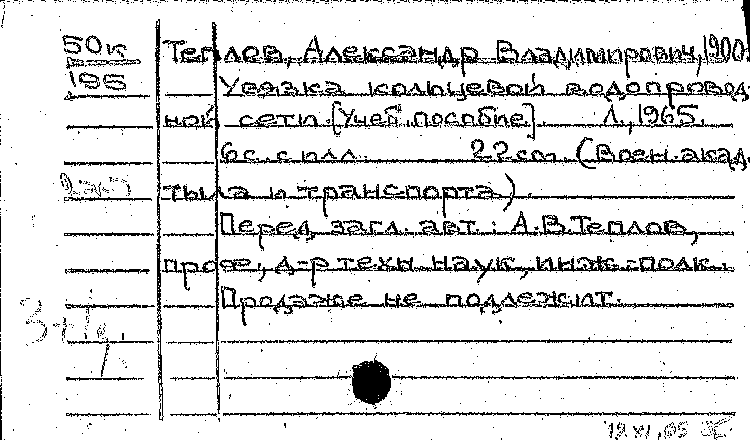 50к Теплов, Александр Владимирович, 1900.
195 Увязка кольцевой водопровод-
ной сети. [Учеб. пособие]. Л., 1965.
6 с. с илл. 22 cm. (Воен. акад.
тыла и транспорта).
Перед загл. авт.: А.В. Теплов,
проф., д-р техн. наук, инж.-полк.
Продаже не подлежит.